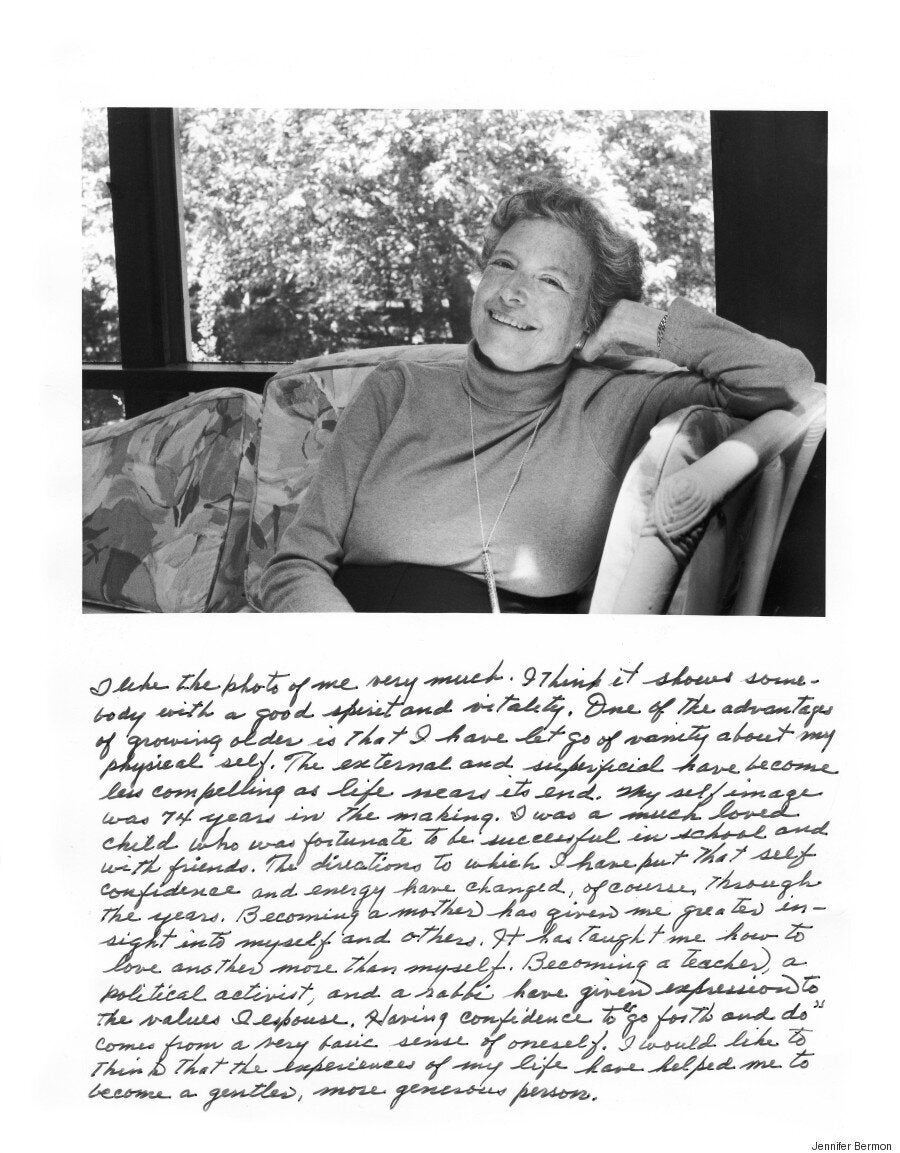 I like the photo of me very much. I think it shows some-
body with a good spirit and vitality. One of the advantages
of growing older is that I have let go of vanity about my
physical self. The external and superficial have become
less compelling as life nears its end. My self image
was 74 years in the making. I was a much loved
child who was fortunate to be successful in school and
with friends. The directions to which I have put that self
confidence and energy have changed, of course, through
the years. Becoming a mother has given me greater in-
sight into myself and others. It has taught me how to
love another more than myself. Becoming a teacher, a
political activist, and a rabbi have given expression to
the values I espouse. Having confidence to "go forth and do"
comes from a very basic sense of oneself. I would like to
think that the experiences of my life have helped me to
become a gentler, more generous person.
Jennifer Bermon